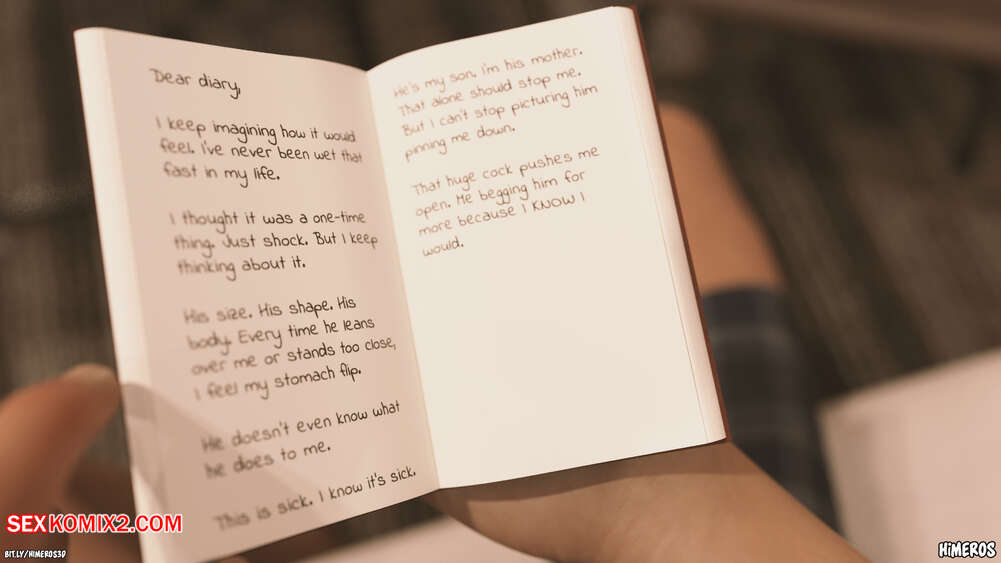 Dear diary,
I keep imagining how it would
feel. I've never been wet that
fast in my life.
I thought it was a one-time
thing. Just shock. But I keep
thinking about it.
His size. His shape. His
body. Every time he leans
over me or stands too close,
I feel my stomach flip.
He doesn't even know what
he does to me.
This is sick. I know it's sick.
He's my son. I'm his mother.
That alone should stop me.
But I can't stop picturing him
pinning me down.
That huge cock pushes me
open. Me begging him for
more because I KNOW I
would.
SEXKOMIX2.COM
BIT.LY/HIMEROS3D
HIMEROS